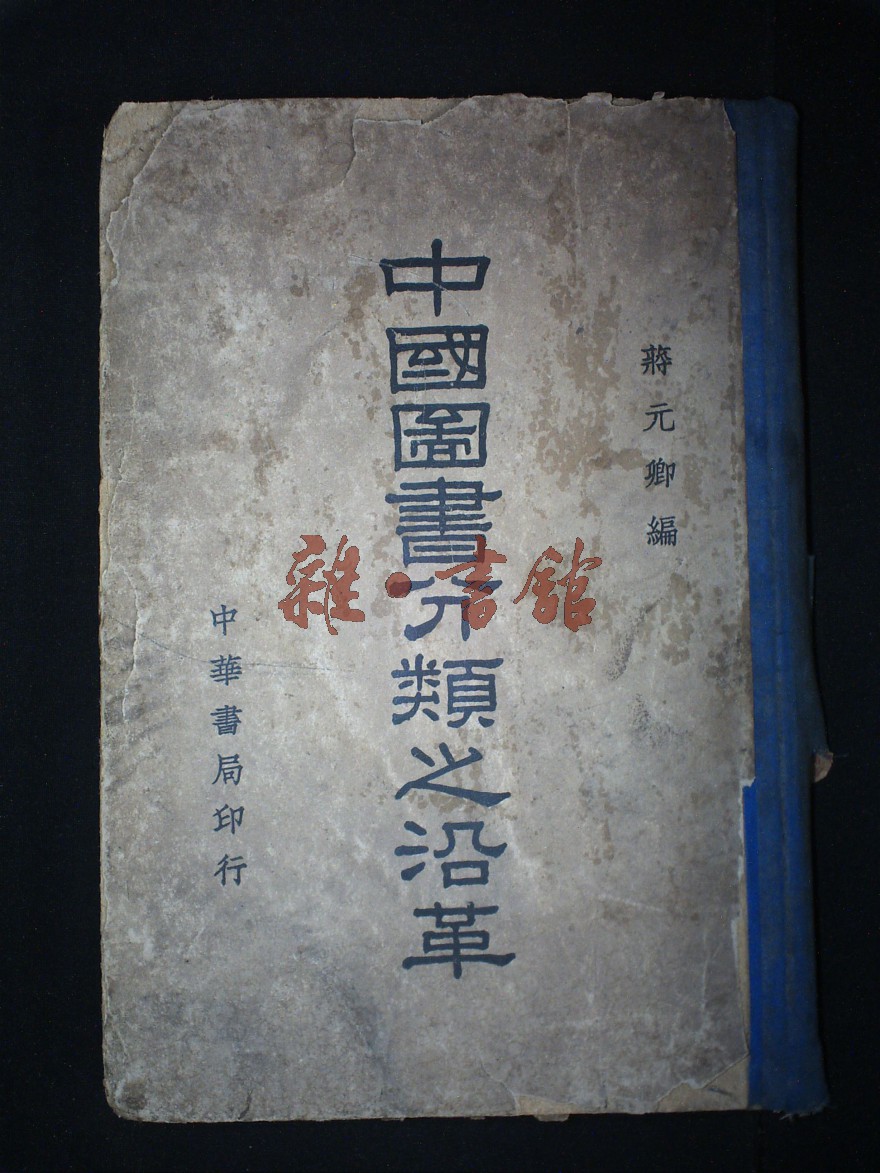 蔣元卿編
中國圖書分類之沿革
中華書局印行
雜·書館